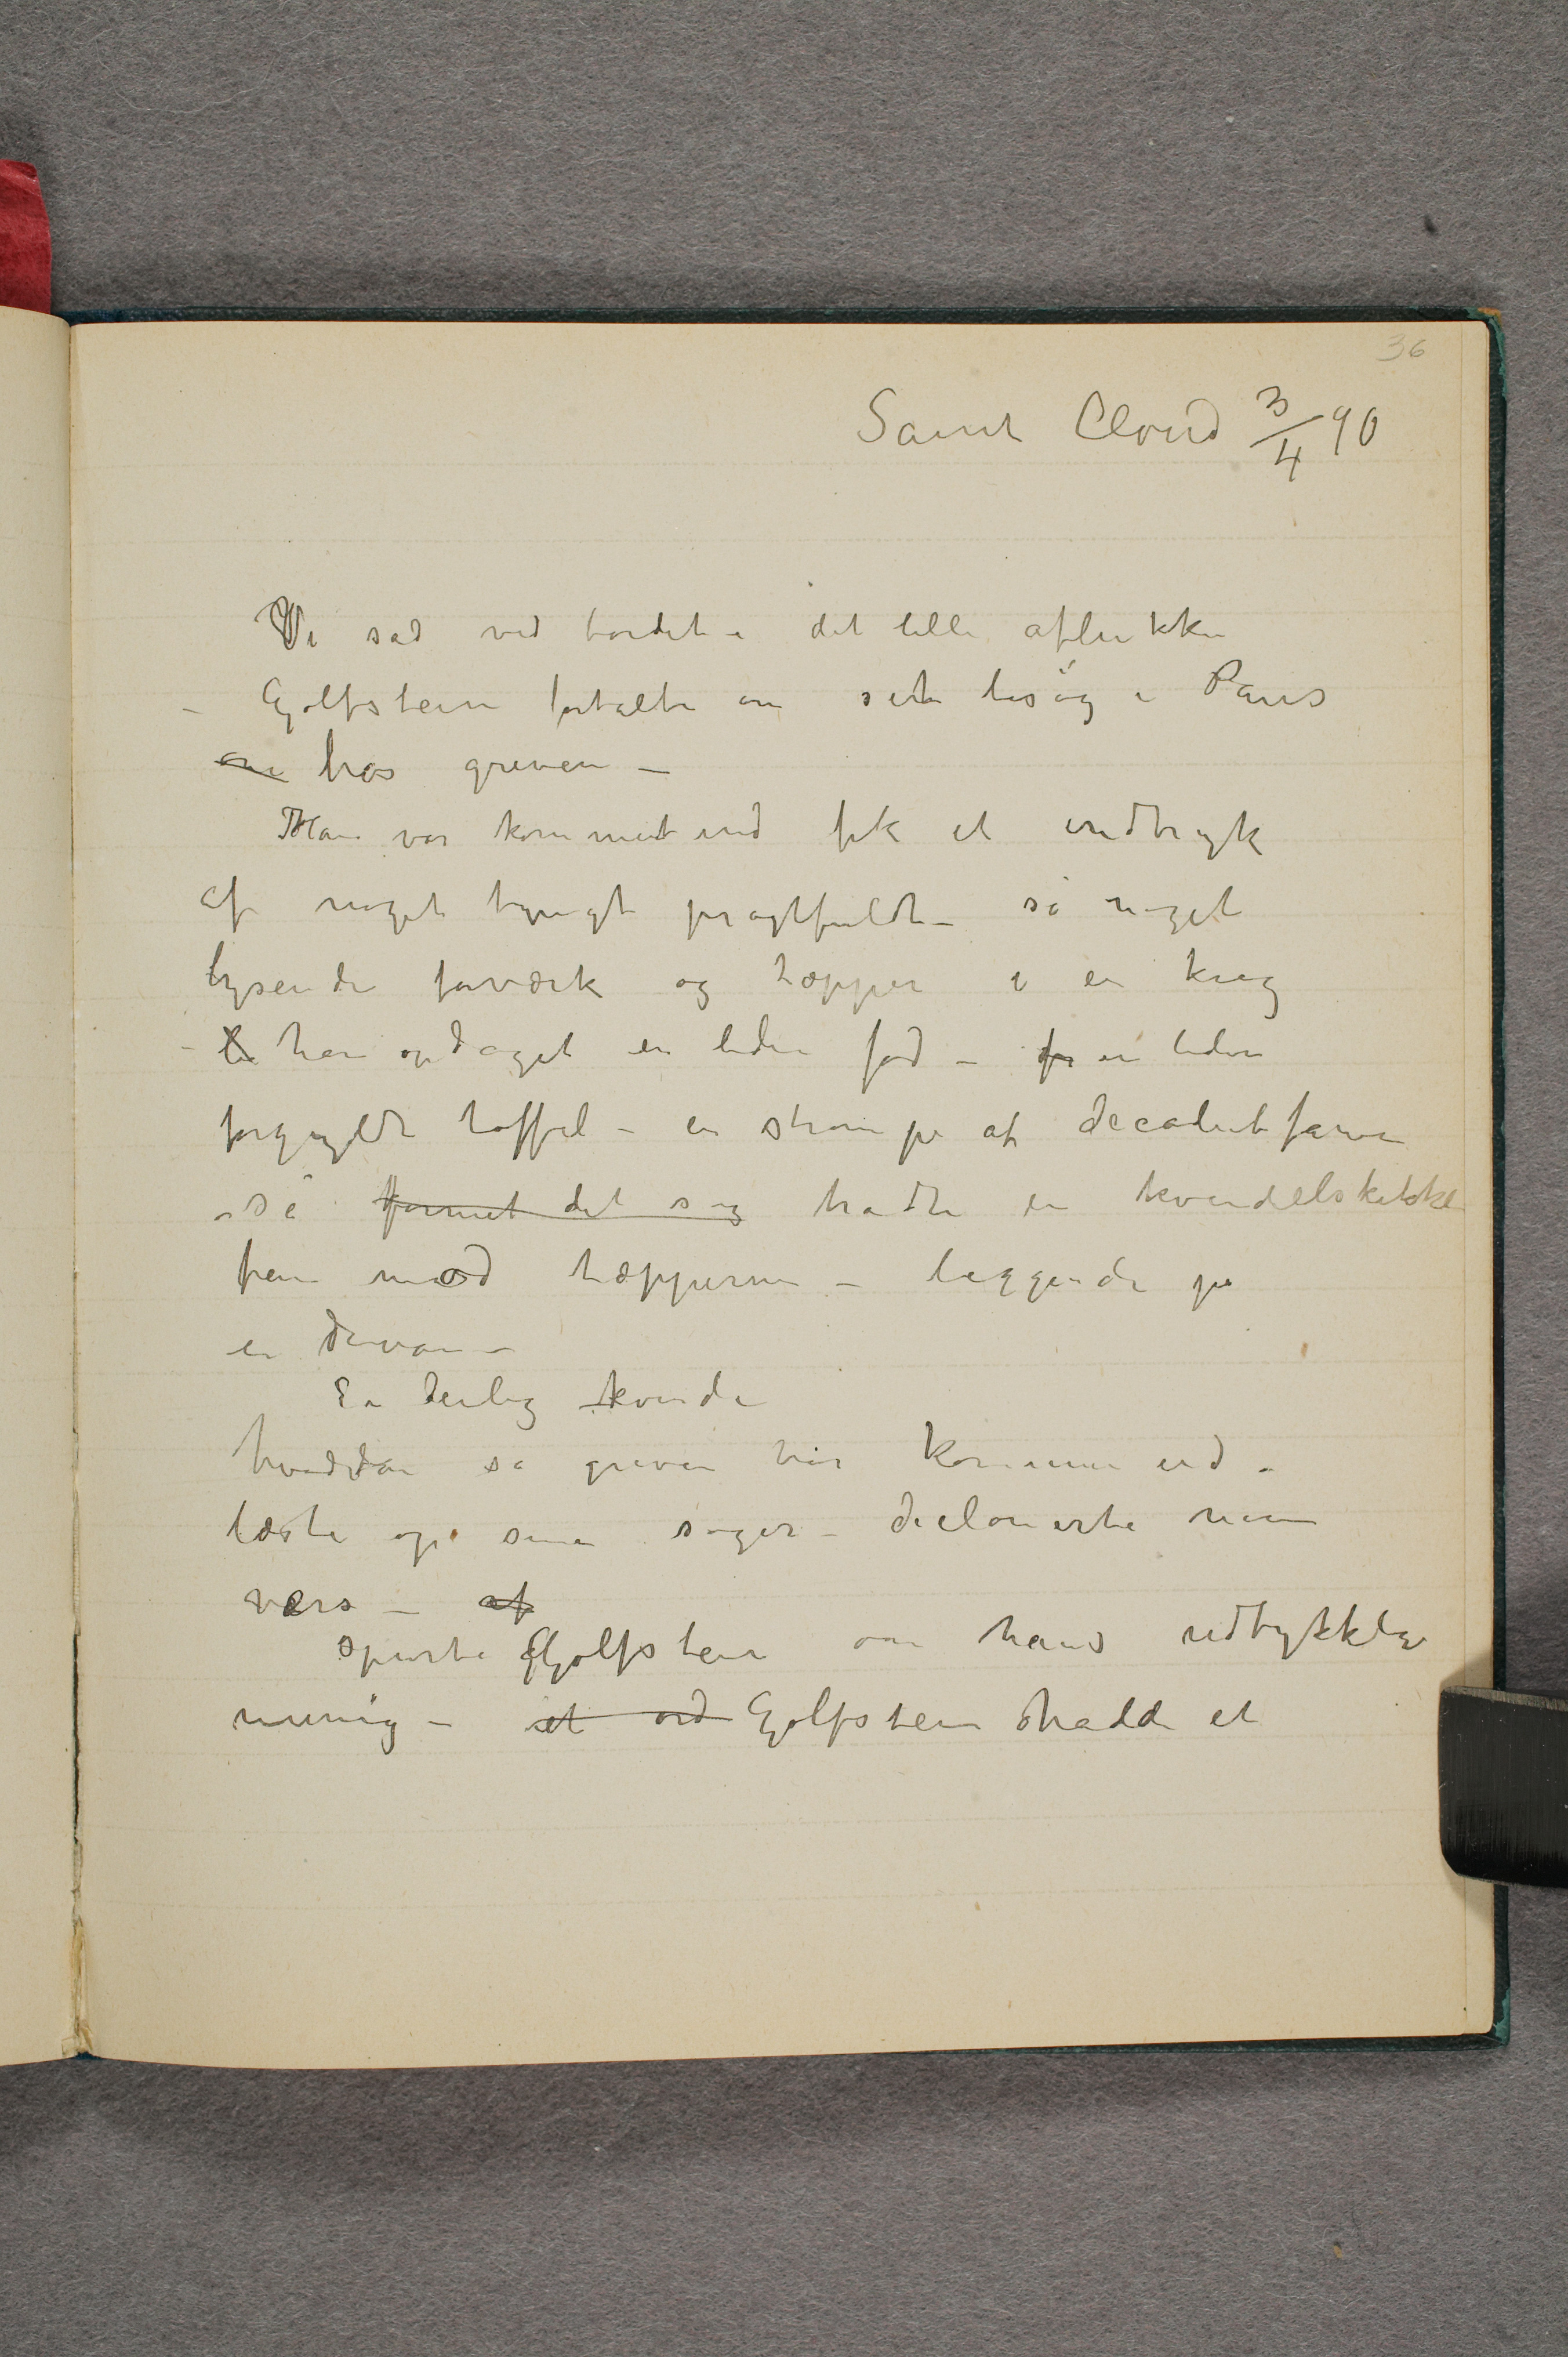 36
Saint Cloud 3/4 90
Vi sad ved bordet i det lille aflukke
– Goldstein fortalte om sit besøg i Paris
om hos greven –
Han var kommet ind fik et indtryk
af noget tyngt pragtfuldt – så noget
lysende farværk og tæpper i en krog
– han opdaget en liden fod – en liden
forgyldt tøffel – en strømpe af decadentfarve
– så formet det sig trådte en kvindelskikkelse
frem mod tæpperne – liggende på
en divan –
En deilig kvinde
hvordan så greven var kommen ind –
læste op sine sager – declamerte
vers – af
spurte Goldstein om hans udtrykkelige
mening – et ord Goldstein hadde et